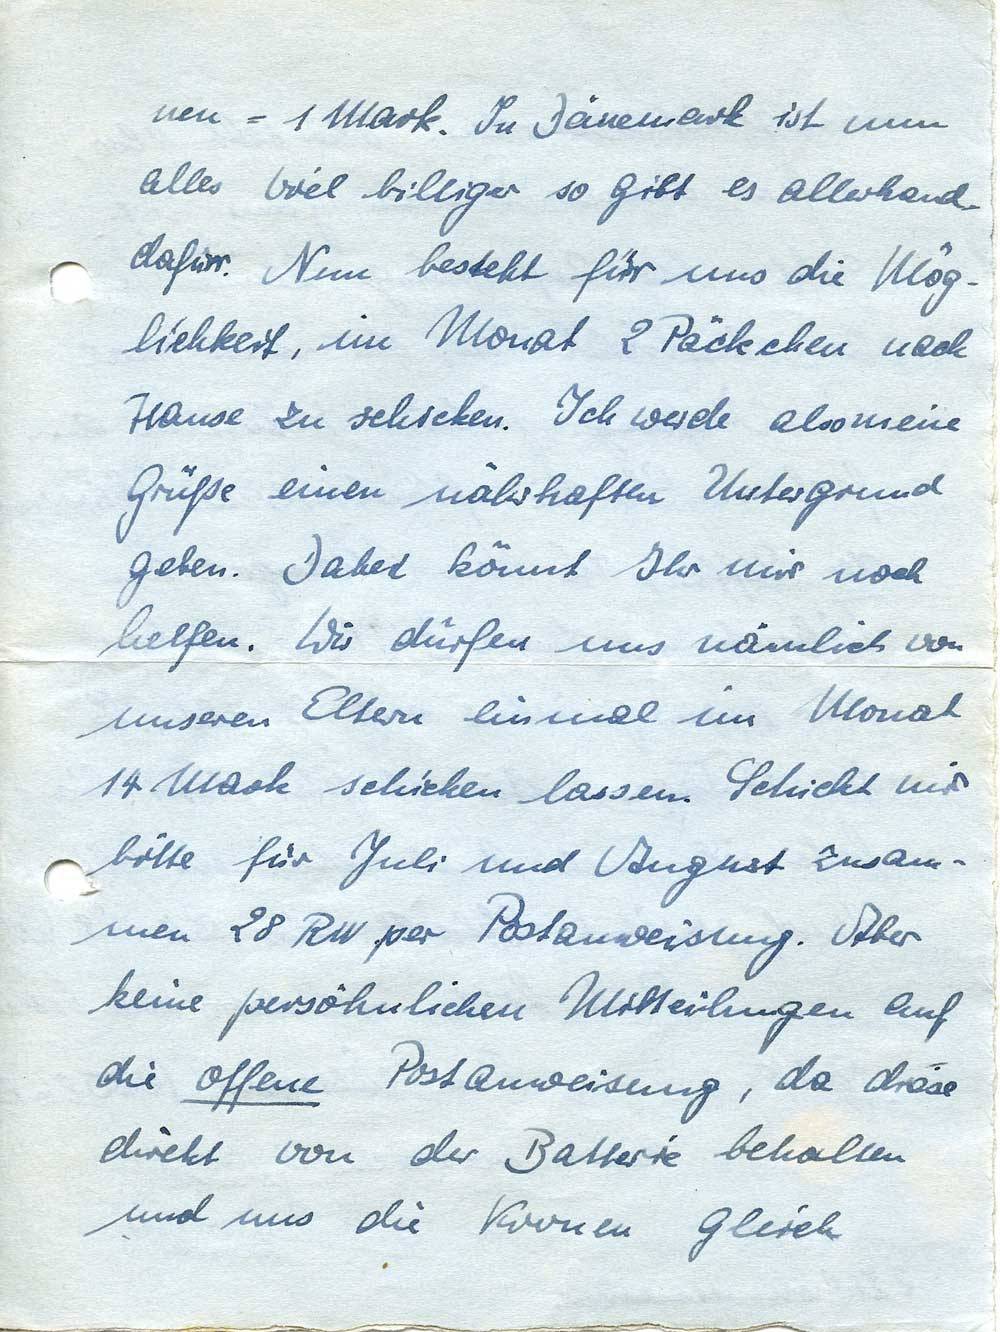 nen = 1 Mark. In Dänemark ist nun
alles viel billiger so gibt es allerhand
dafür. Nun besteht für uns die Mög-
lichkeit, im Monat 2 Päckchen nach
Hause zu schicken. Ich werde also meine
Grüße einen nahrhaften Untergrund
geben. Dabei könnt Ihr mir noch
helfen. Wir dürfen uns nämlich von
unseren Eltern einmal im Monat
14 Mark schicken lassen. Schickt mir
bitte für Juli und August zusam-
men 28 RM per Postanweisung. Aber
keine persöhnlichen Mitteilungen auf
die offene Postanweisung, da diese
direkt von der Batterie behalten
und uns die Kronen gleich